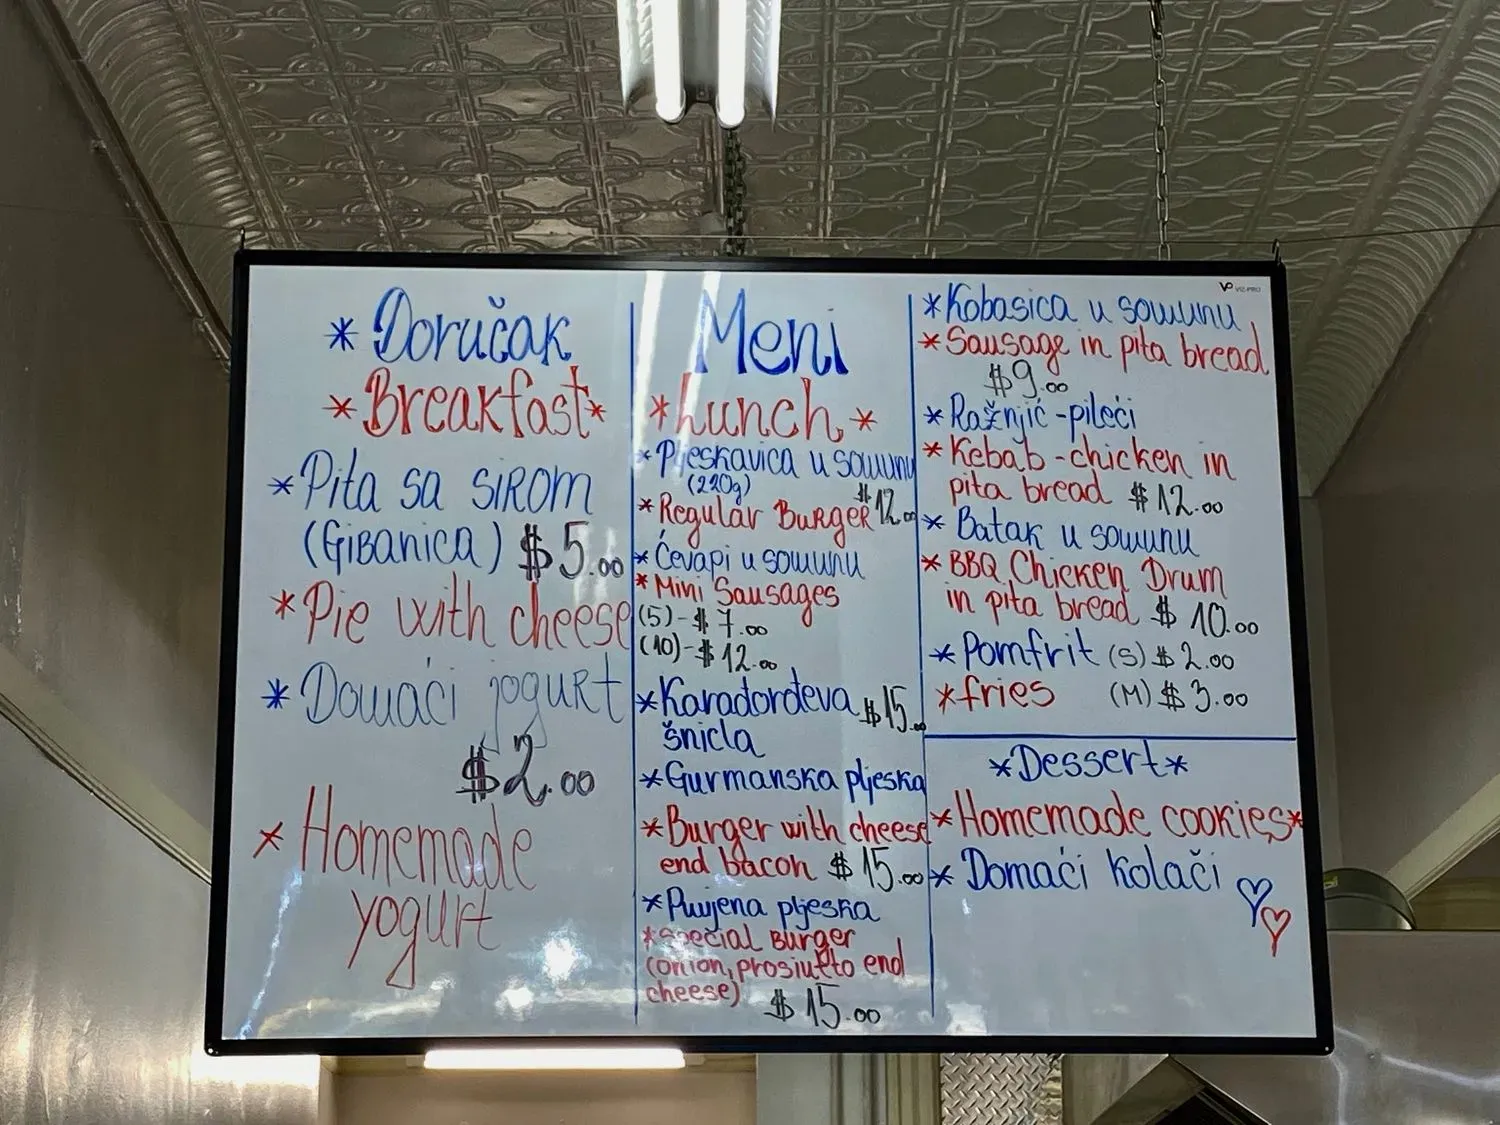 * Doručak
* Breakfast *
* Pita sa sirom
(Gibanica) $5.00
* Pie with cheese
* Domaći jogurt
$2.00
* Homemade
yogurt
Meni
* Lunch *
* Pljeskavica u somunu
(220g) $12.00
* Regular Burger
* Ćevapi u somunu
* Mini Sausages
(5)-$7.00
(10)-$12.00
* Karađorđeva $15.00
šnicla
* Gurmanska pljeska
* Burger with cheese
end bacon $15.00
* Punjena pljeska
* Special Burger
(onion, prosiutto end
cheese) $15.00
VIZ-PRO
* Kobasica u somunu
* Sausage in pita bread
$9.00
* Ražnjić - pileći
* Kebab - chicken in
pita bread $12.00
* Batak u somunu
* BBQ Chicken Drum
in pita bread $10.00
* Pomfrit (S) $2.00
* fries (M) $3.00
* Dessert *
* Homemade cookies *
* Domaći kolači